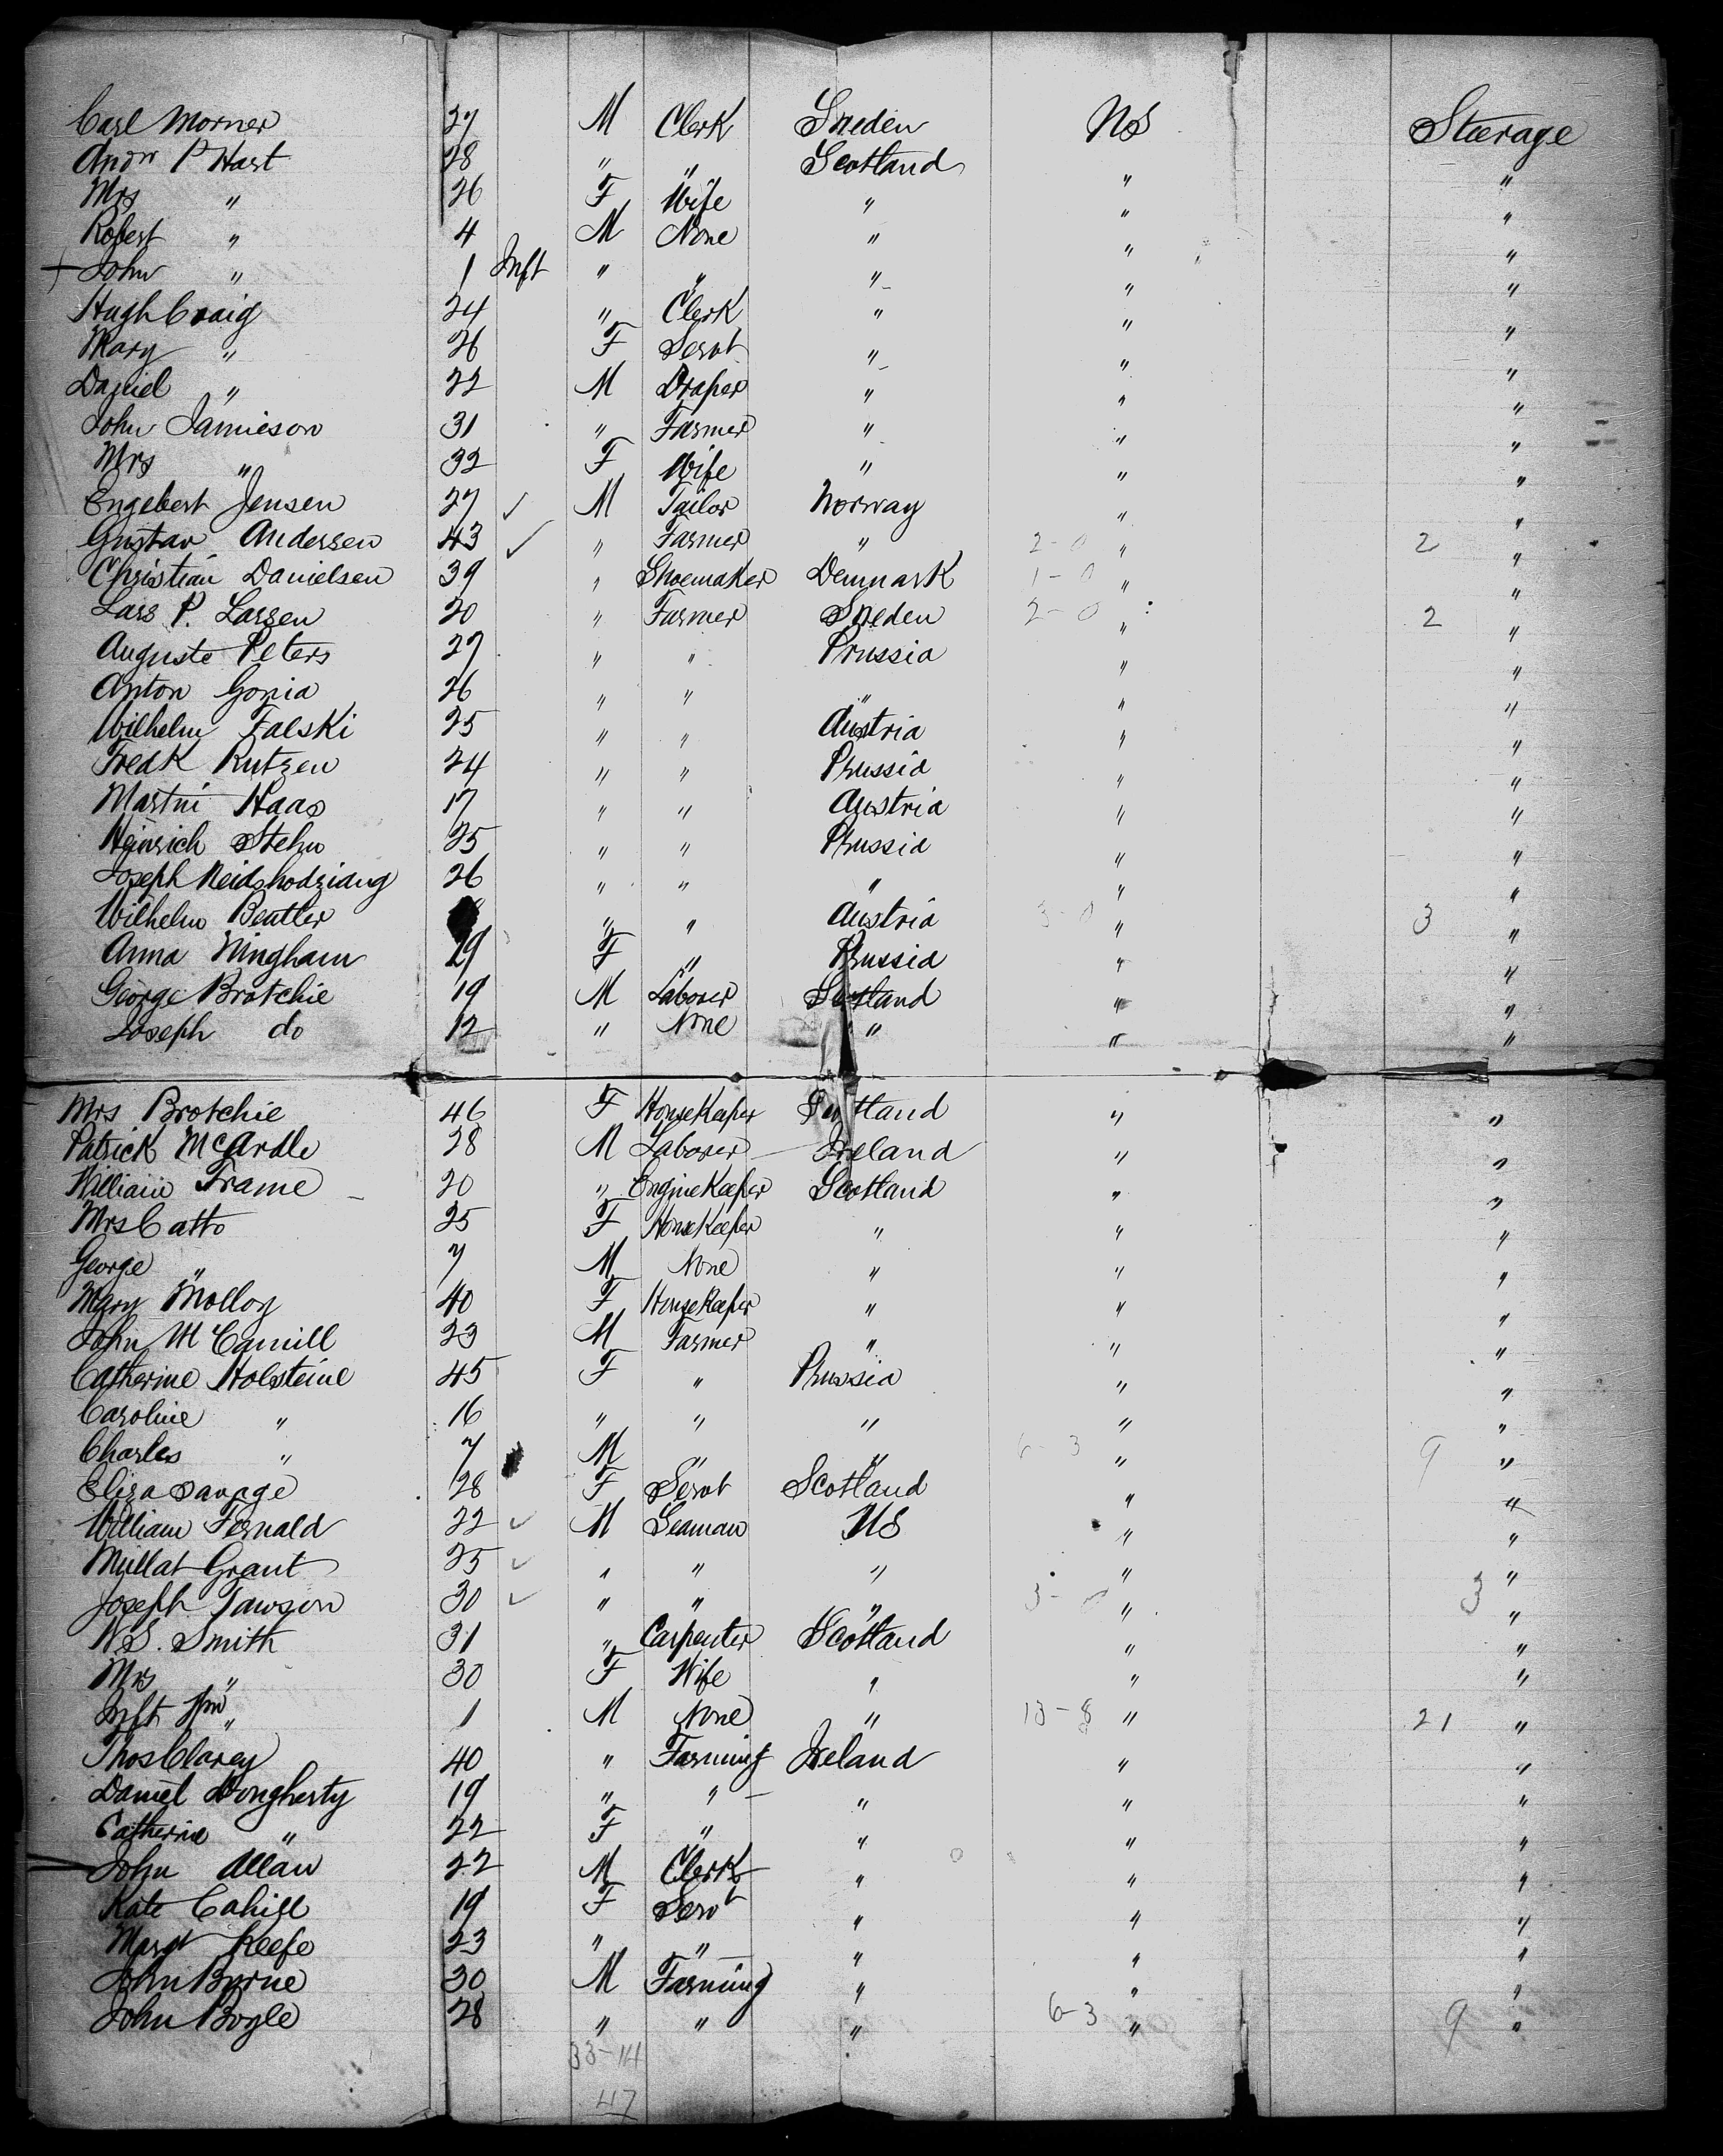 Carl Morner 27 M Clerk Sweden US Steerage
Andw P Hast 28 " " Scotland " "
Mrs " 26 F Wife " " "
Robert " 4 M None " " "
John " 1 Inft " " " " "
Hugh Craig 24 " Clerk " " "
Mary " 26 F Servt " " "
Daniel " 22 M Draper " " "
John Jamieson 31 " Farmer " " "
Mrs " 32 F Wife " " "
Engebert Jensen 27 ✓ M Tailor Norway " "
Gustav Andersen 43 ✓ " Farmer " 2-0 " 2 "
Christian Danielsen 39 " Shoemaker Denmark 1-0 " "
Lars P. Larsen 20 " Farmer Sweden 2-0 " 2 "
Auguste Peters 27 " " Prussia " "
Anton Gonia 26 " " " " "
Wilhelm Falski 25 " " Austria " "
Fredk Rutzen 24 " " Prussia " "
Martin Haas 17 " " Austria " "
Heinrich Stehn 25 " " Prussia " "
Joseph 26 " " " " "
Wilhelm Beatler " " Austria 3-0 " 3 "
Anna Ningham 29 F " Prussia " "
George Brotchie 19 M Laborer Scotland " "
Joseph do 12 " None " " "
Mrs Brotchie 46 F HouseKeeper Scotland " "
Patrick McArdle 28 M Laborer Ireland " "
William Frame 20 " EngineKeeper Scotland " "
Mrs Catto 25 F HouseKeeper " " "
George " 7 M None " " "
Mary Molloy 40 F HouseKeeper " " "
John McCamill 23 M Farmer " " "
Catherine Holsteine 45 F " Prussia " "
Caroline " 16 " " " " "
Charles " 7 M " " 6-3 " 9 "
Eliza Savage 28 F Servt Scotland " "
William Fernald 22 ✓ M Seaman US " "
Millat Grant 25 ✓ " " " " "
Joseph Tawson 30 ✓ " " " 3-0 " 3 "
W.S. Smith 31 " Carpenter Scotland " "
Mrs " 30 F Wife " " "
Inft Wm " 1 M None " 13-8 " 21 "
Thos Clarey 40 " Farming Ireland " "
Daniel Dougherty 19 " " " " "
Catherine " 22 F " " " "
John Allan 22 M Clerk " " "
Kate Cahill 19 F Servt " " "
Margt Keefe 23 " " " " "
John Byrne 30 M Farming " " "
John Bogle 28 " " " 6-3 " 9 "
33-14
47